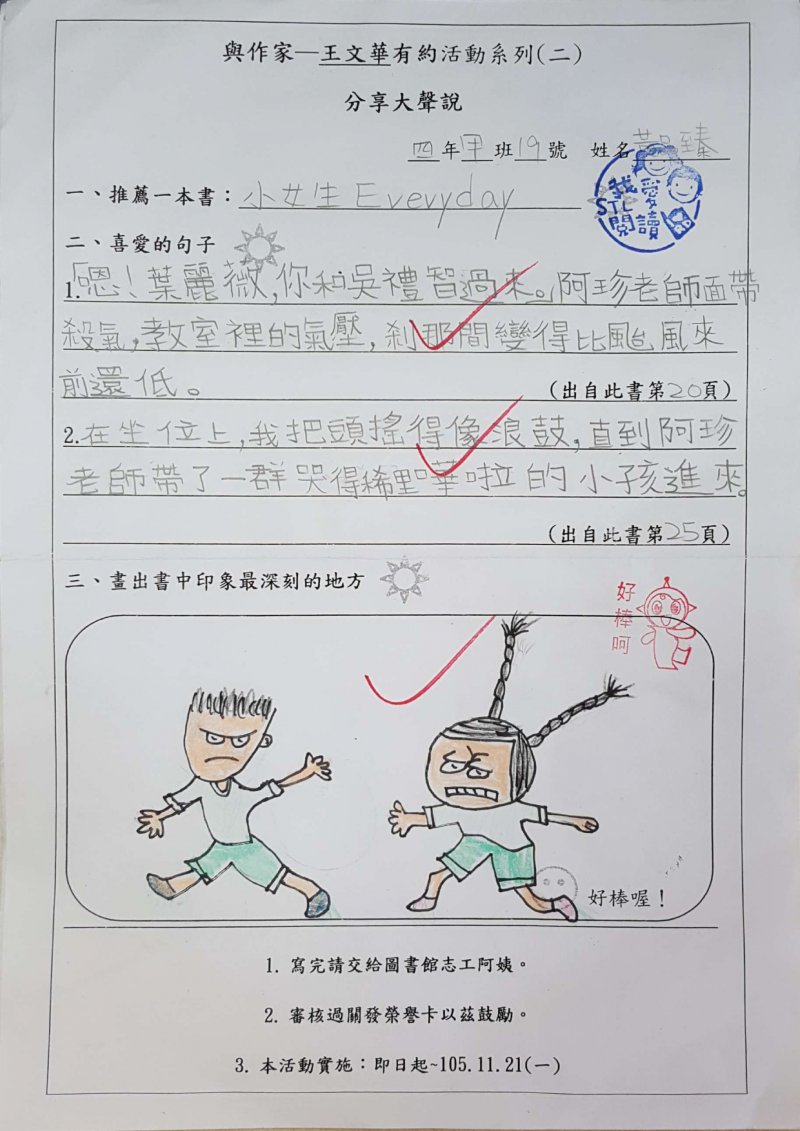 與作家—王文華有約活動系列(二)
分享大聲說
四年甲班19號 姓名黃 臻
一、推薦一本書：小女生Everyday
我愛
STL
閱讀
二、喜愛的句子
1.嗯！葉麗薇，你和吳禮智過來。阿珍老師面帶
殺氣，教室裡的氣壓，剎那間變得比颱風來
前還低。 (出自此書第20頁)
2.在坐位上，我把頭搖得像浪鼓，直到阿珍
老師帶了一群哭得稀里嘩啦的小孩進來。
(出自此書第25頁)
三、畫出書中印象最深刻的地方
好棒呵
好棒喔！
1. 寫完請交給圖書館志工阿姨。
2. 審核過關發榮譽卡以茲鼓勵。
3. 本活動實施：即日起~105.11.21(一)